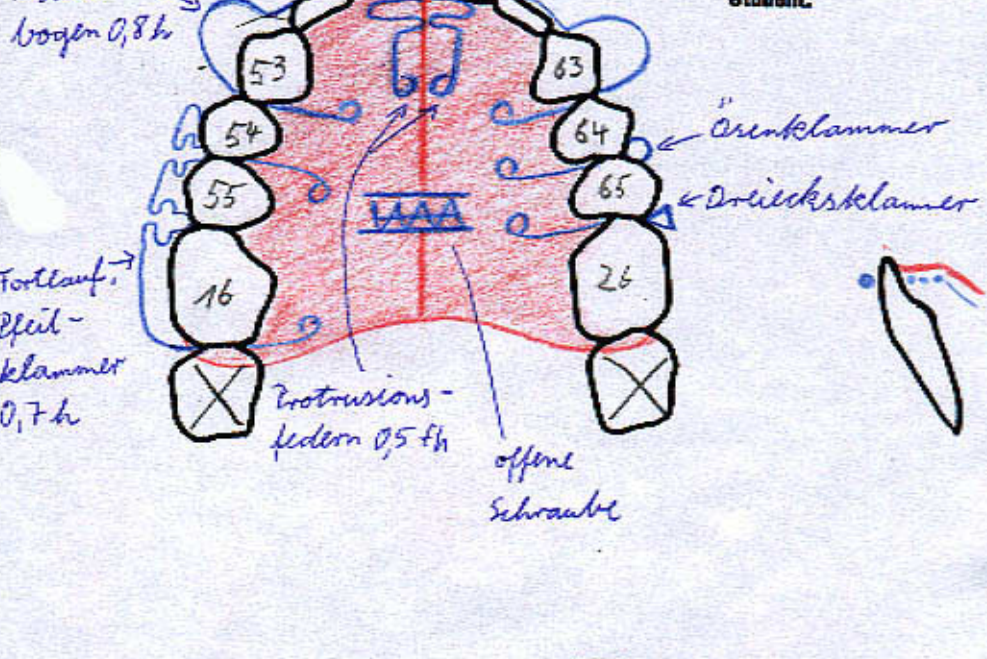 bogen 0,8 h
Student.
53
63
54
64
Ösenklammer
55
65
Dreiecksklammer
Fortlauf.
Pfeil-
klammer
0,7 h
16
26
Protrusions-
federn 0,5 fh
offene
Schraube